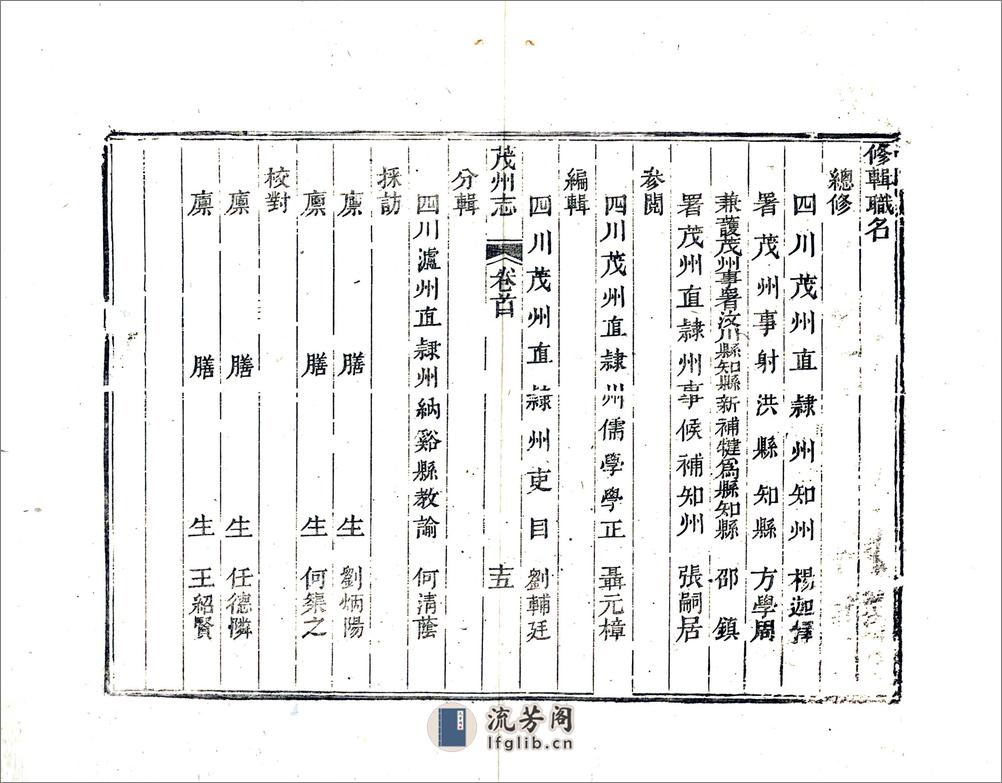 修輯職名
總修
四川茂州直隷州知州 楊迦懌
署茂州事射洪縣知縣 方學周
兼護茂州事署汶川縣知縣新補犍爲縣知縣 邵鎮
署茂州直隷州事候補知州 張嗣居
參閲
四川茂州直隷州儒學學正 聶元樟
編輯
四川茂州直隷州吏目 劉輔廷
茂州志 卷首 十五
分輯
四川瀘州直隷州納谿縣教諭 何清蔭
採訪
廩膳生 劉炳陽
廩膳生 何榘之
校對
廩膳生 任德憐
廩膳生 王紹賢
流芳阁
lfglib.cn